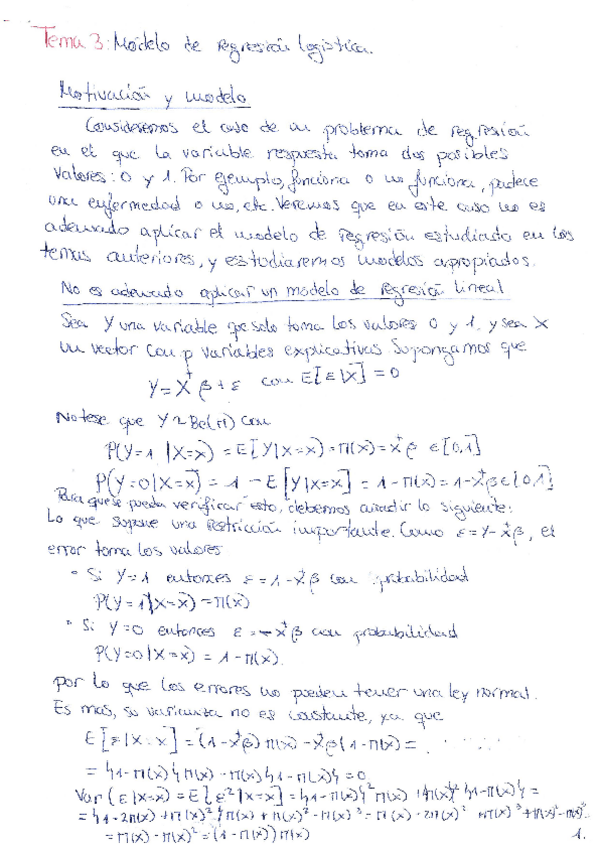 Tema 3: Modelo de regresión logística.
Motivación y modelo
Consideremos el caso de un problema de regresión
en el que la variable respuesta toma dos posibles
valores: 0 y 1. Por ejemplo, funciona o no funciona, padece
una enfermedad o no, etc. Veremos que en este caso no es
adecuado aplicar el modelo de regresión estudiado en los
temas anteriores, y estudiaremos modelos apropiados.
No es adecuado aplicar un modelo de regresión lineal
Sea Y una variable que solo toma los valores 0 y 1, y sea X
un vector con p variables explicativas. Supongamos que
Y = X^t β + ε con E[ε|X] = 0
Nótese que Y ~ Be(π) con
P(Y=1 |X=x) = E[Y|X=x) = π(x) = x^t β ∈ [0,1]
P(Y=0|X=x) = 1 - E[Y|X=x] = 1 - π(x) = 1 - x^t β ∈ [0,1]
Para que se pueda verificar esto, debemos añadir lo siguiente:
Lo que supone una restricción importante. Como ε = Y - x^t β, el
error toma los valores
• Si Y=1 entonces ε = 1 - x^t β con probabilidad
P(Y=1|X=x) = π(x)
• Si Y=0 entonces ε = -x^t β con probabilidad
P(Y=0|X=x) = 1 - π(x).
por lo que los errores no pueden tener una ley normal.
Es más, su varianza no es constante, ya que
E[ε|X=x] = (1 - x^t β) π(x) - x^t β (1 - π(x)) =
= {1 - π(x)} π(x) - π(x) {1 - π(x)} = 0
Var(ε|X=x) = E[ε²|X=x] = {1 - π(x)}² π(x) + π(x)² {1 - π(x)} =
= {1 - 2π(x) + π(x)²} π(x) + π(x)² - π(x)³ = π(x) - 2π(x)² + π(x)³ + π(x)² - π(x)³
= π(x) - π(x)² = (1 - π(x)) π(x)
1.